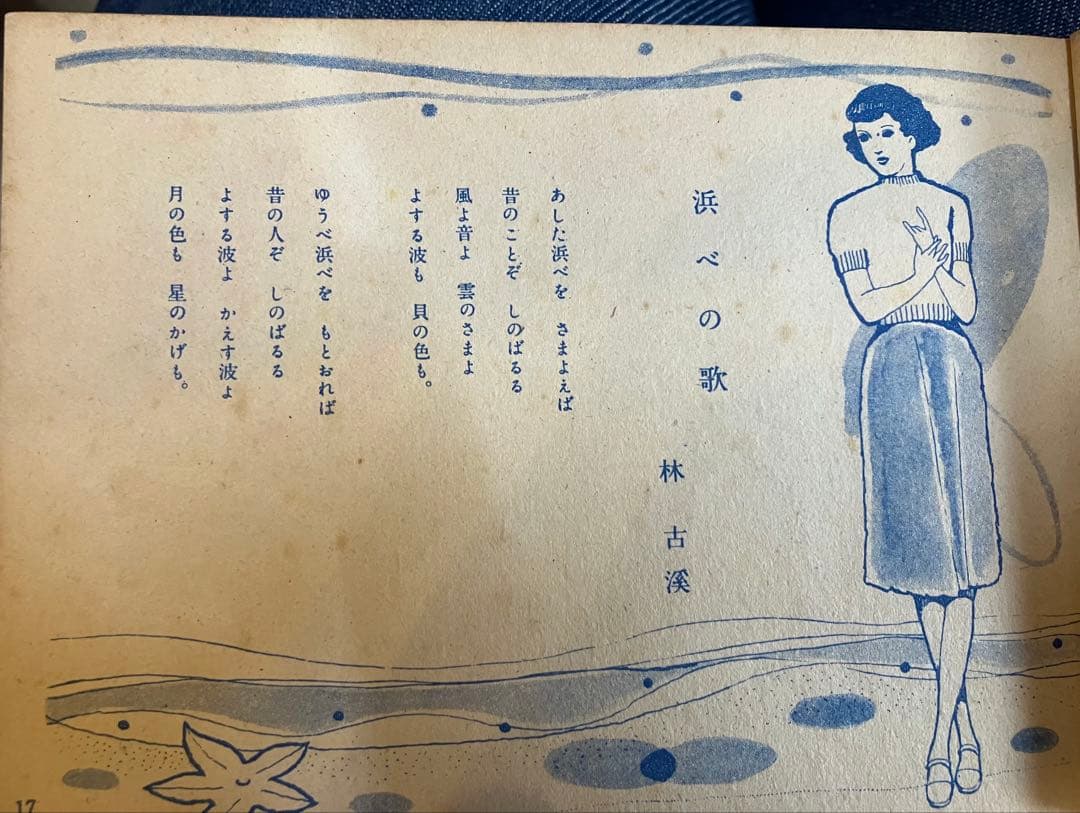 浜べの歌
林古溪
あした浜べを　さまよえば
昔のことぞ　しのばるる
風よ音よ　雲のさまよ
よする波も　貝の色も。
ゆうべ浜べを　もとおれば
昔の人ぞ　しのばるる
よする波よ　かえす波よ
月の色も　星のかげも。
17